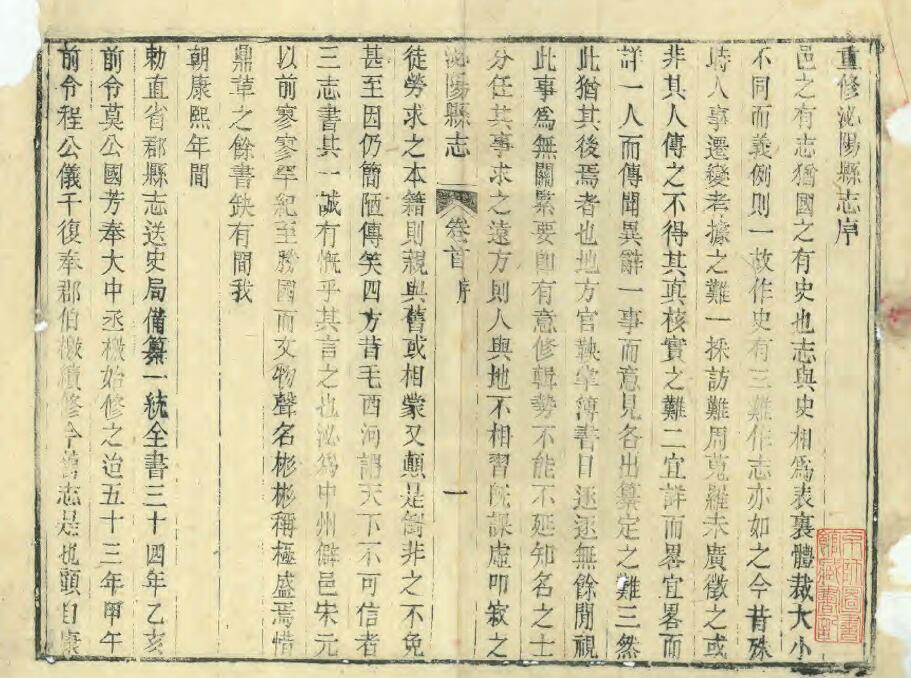 重修泌陽縣志序
邑之有志猶國之有史也志與史相爲表裏體裁大小
不同而義例則一故作史有三難作志亦如之今昔殊
時人事遷變考據之難一採訪難周蒐羅未廣徵之或
非其人傳之不得其真核實之難二宜詳而畧宜畧而
詳一人而傳聞異辭一事而意見各出纂定之難三然
此猶其後焉者也地方官鞅掌簿書日逐逐無餘閒視
此事爲無關緊要卽有意修輯勢不能不延知名之士
分任其事求之遠方則人與地不相習旣課虛叩寂之
泌陽縣志 卷首 序 一
徒勞求之本籍則親與舊或相蒙又顛是倒非之不免
甚至因仍簡陋傳笑四方昔毛西河謂天下不可信者
三志書其一誠有慨乎其言之也泌爲中州僻邑宋元
以前寥寥罕紀至勝國而文物聲名彬彬稱極盛焉惜
鼎革之餘書缺有間我
朝康熙年間
勅直省郡縣志送史局備纂一統全書三十四年乙亥
前令莫公國芳奉大中丞檄始修之迨五十三年甲午
前令程公儀千復奉郡伯檄續修今舊志是也顧自康
京師圖書館藏書印